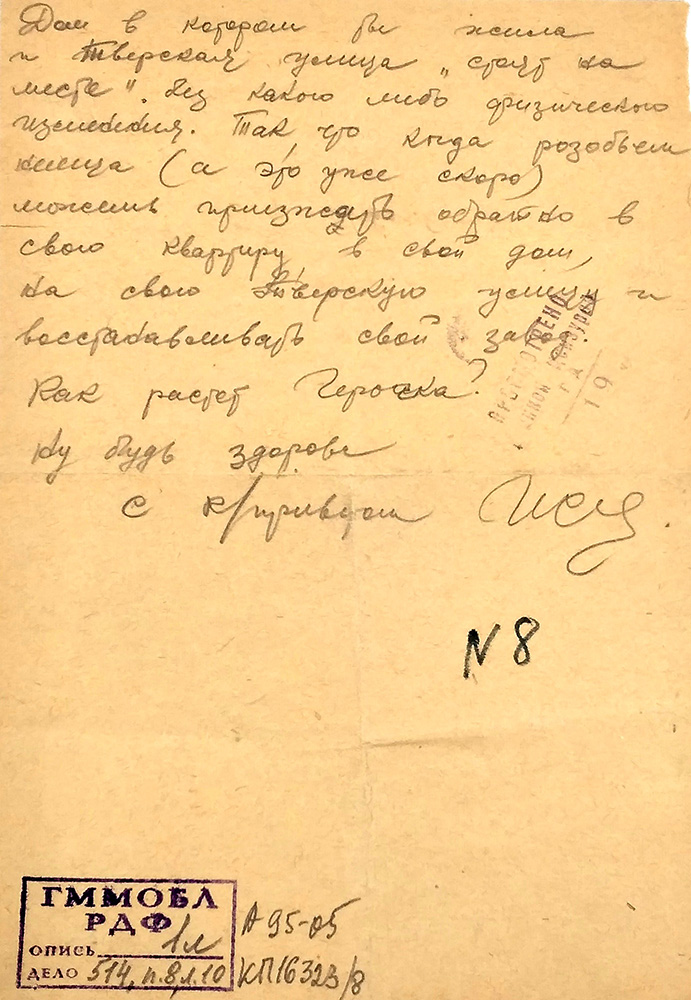 Дом в котором ты жила
и Тверская улица „стоят на
месте". без какого либо физического
изменения. Так что когда разобьем
немца (а это уже скоро)
можешь приезжать обратно в
свою квартиру в свой дом,
на свою Тверскую улицу и
восстанавливать свой завод.
Как растет Герочка?
Ну будь здорова
С к/приветом
ПРОСМОТРЕНО
Военной Цензурой
19
N 8
ГММОБЛ
РДФ
ОПИСЬ 1л
ДЕЛО 514, п.8,л.10
А 95-05
КП16323/8